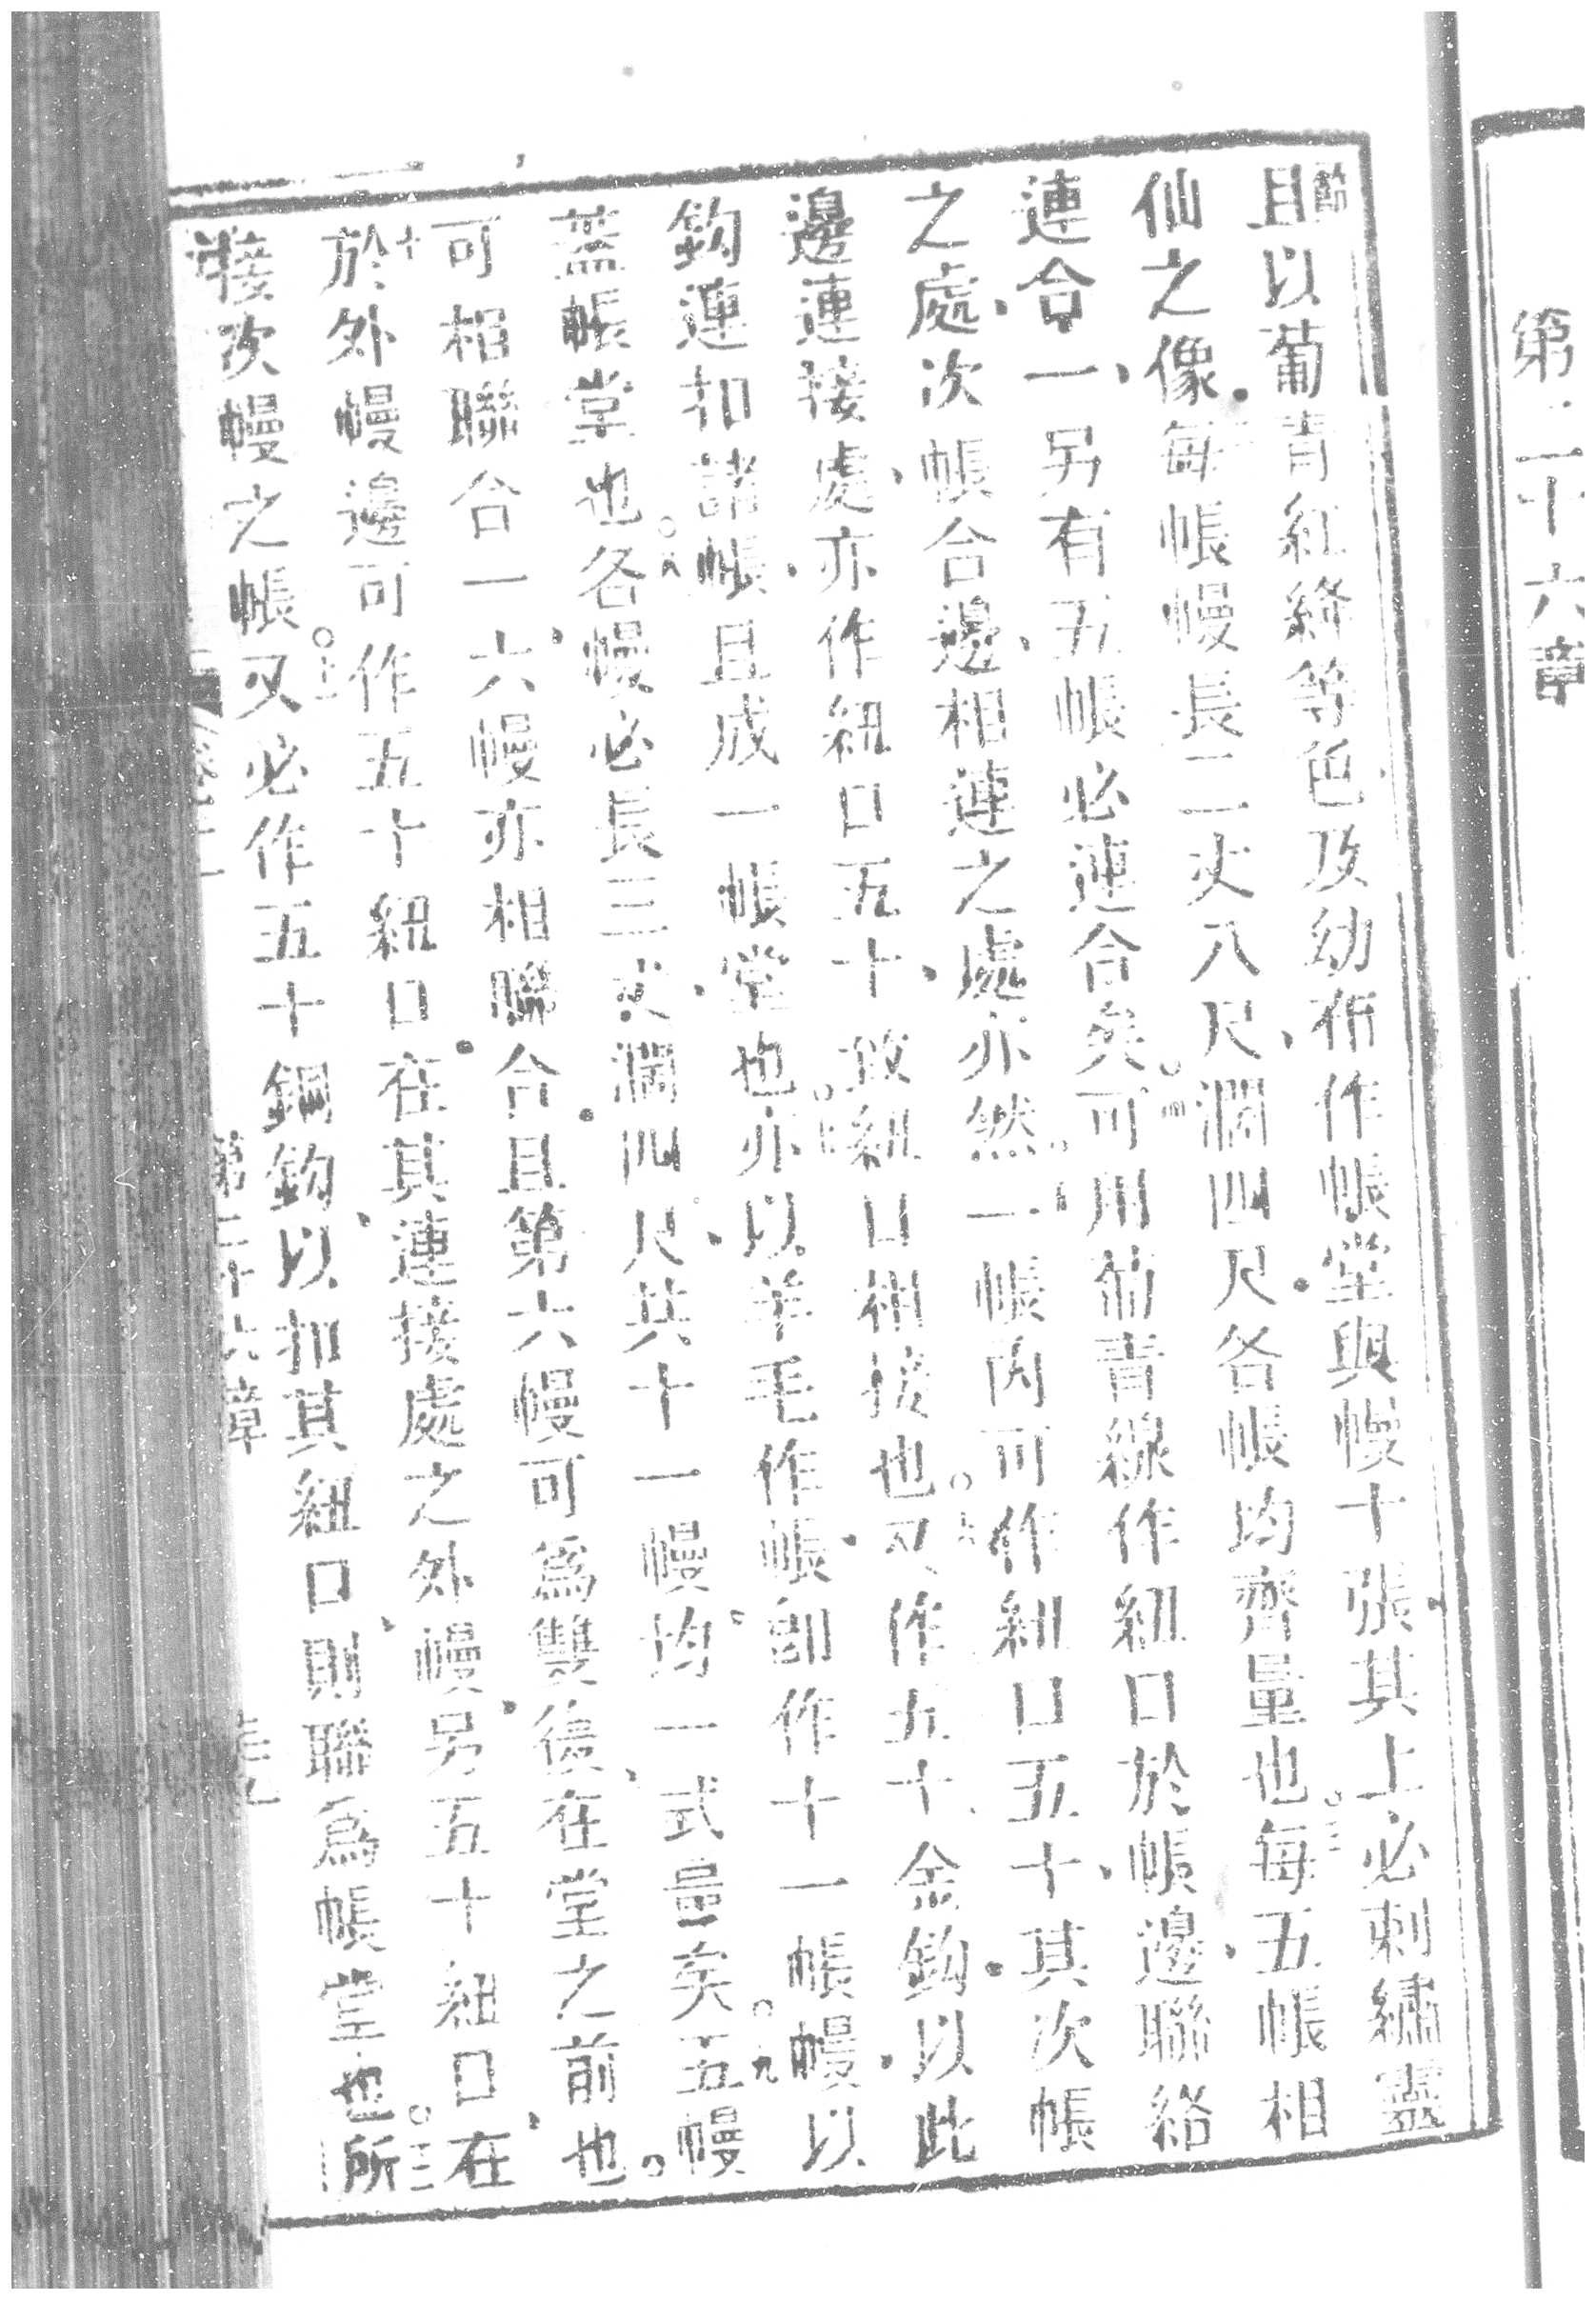 第二十六章
節
且以葡青紅絳等色及幼布作帳堂與幔十張其上必刺繡靈
仙之像每帳幔長二丈八尺濶四尺各帳均齊量也三每五帳相
連合一另有五帳必連合矣四可用葡青線作紐口於帳邊聯絡
之處次帳合邊相連之處亦然一帳內可作紐口五十其次帳
邊連接處亦作紐口五十致紐口相接也又作五十金鈎以此
鈎連扣諸帳且成一帳堂也亦以羊毛作帳卽作十一帳幔以
蓋帳堂也八各幔必長三丈濶四尺共十一幔均一式量矣九五幔
可相聯合一六幔亦相聯合且第六幔可為雙後在堂之前也
十於外幔邊可作五十紐口在其連接處之外幔另五十紐口在
接次幔之帳十一又必作五十銅鈎以扣其紐口則聯為帳堂也十二所
第二十六章